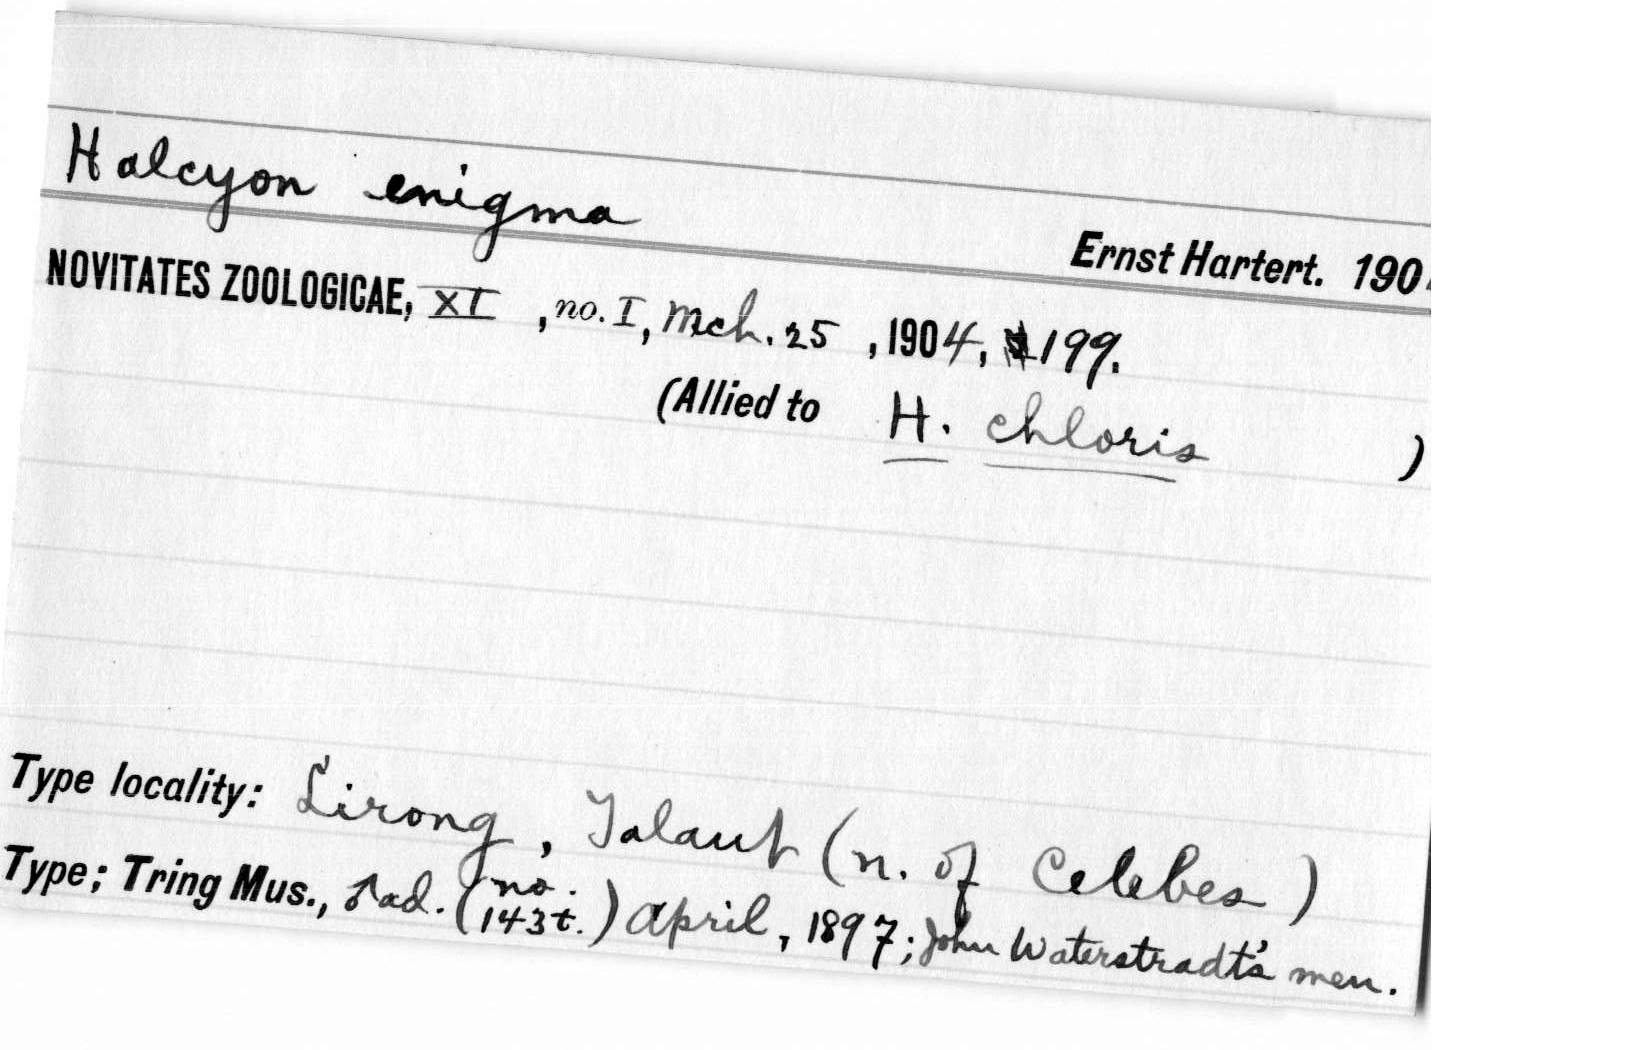 Halcyon enigma
Ernst Hartert. 190
NOVITATES ZOOLOGICAE, XI, no. I, Mch. 25, 1904, 199.
(Allied to H. chloris)
Type locality: Lirong, Talaut (n. of Celebes)
Type; Tring Mus., ♂ ad. (no. 143t.) April, 1897; John Waterstradt's men.